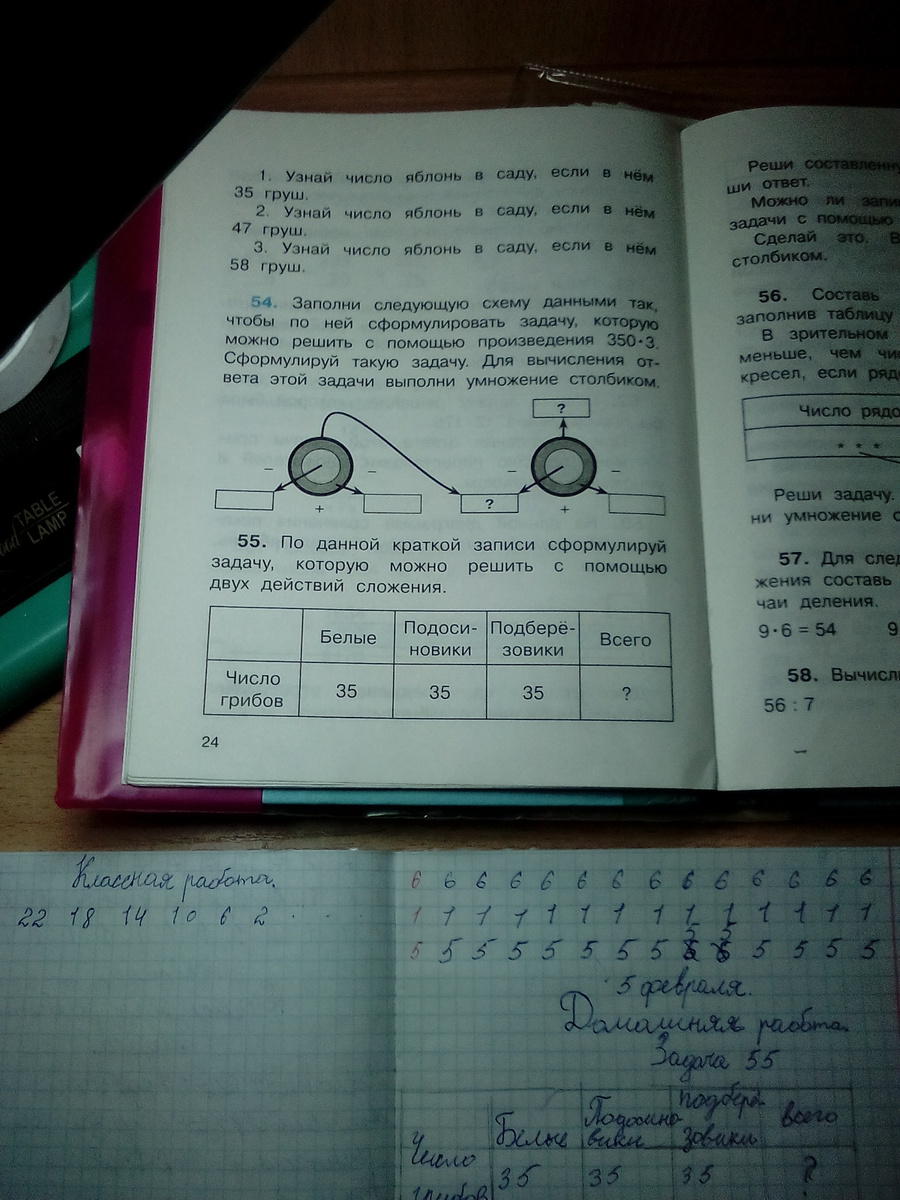 1. Узнай число яблонь в саду, если в нём
35 груш.
2. Узнай число яблонь в саду, если в нём
47 груш.
3. Узнай число яблонь в саду, если в нём
58 груш.
54. Заполни следующую схему данными так,
чтобы по ней сформулировать задачу, которую
можно решить с помощью произведения 350·3.
Сформулируй такую задачу. Для вычисления от-
вета этой задачи выполни умножение столбиком.
?
− − − −
?
+ +
55. По данной краткой записи сформулируй
задачу, которую можно решить с помощью
двух действий сложения.
Белые Подоси-
новики Подберё-
зовики Всего
Число
грибов 35 35 35 ?
24
Реши составленну
ши ответ.
Можно ли запи
задачи с помощью
Сделай это. В
столбиком.
56. Составь
заполнив таблицу
В зрительном
меньше, чем чис
кресел, если рядо
Число рядо
* * *
Реши задачу.
ни умножение с
57. Для след
жения составь
чаи деления.
9·6 = 54 9
58. Вычисли
56 : 7
TABLE
LAMP
Классная работа.
22 18 14 10 6 2 . . .
6 6 6 6 6 6 6 6 6 6 6 6 6 6
1 1 1 1 1 1 1 1 1 1 1 1 1 1
5 5 5 5 5 5 5 5 5 5 5 5 5 5
5 февраля.
Домашняя работа.
Задача 55
Белые Подосино
вики подберё-
зовики всего
Число
грибов 35 35 35 ?